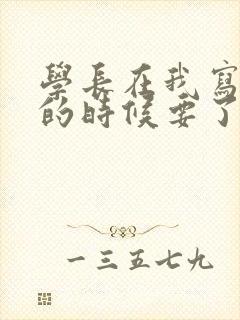 學長在我寫
的時候要了
一三五七九